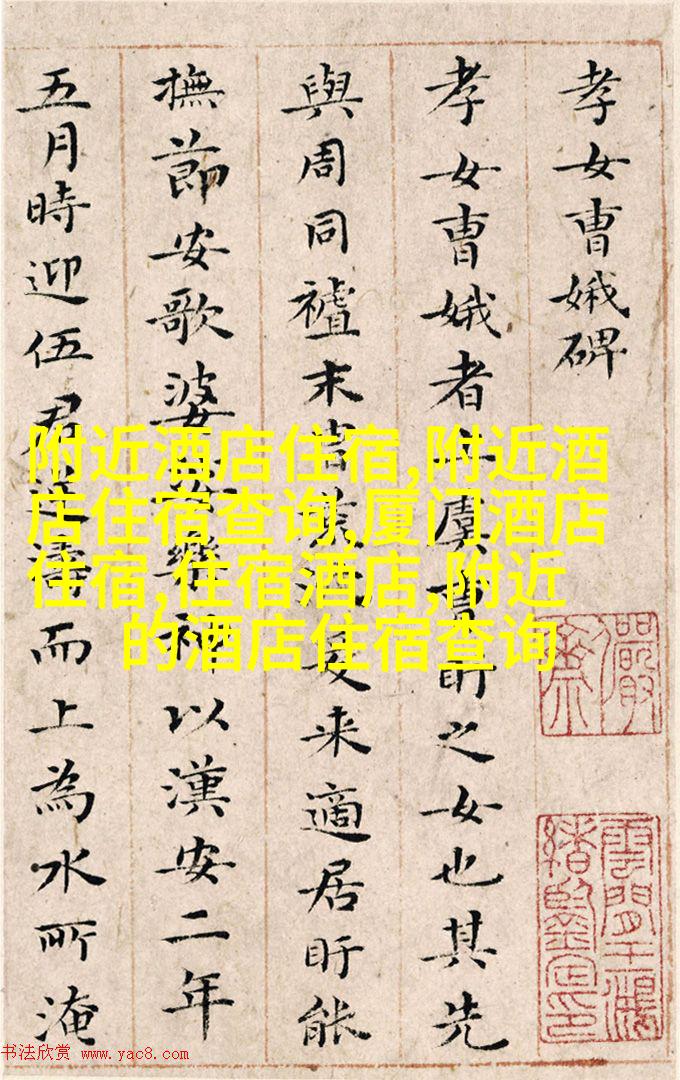 孝女曹娥碑
孝女曹娥者上虞曹盱之女也其先
與周同禮末胄爰来適居盱能
撫節安歌婆娑樂神以漢安二年
五月時迎伍君逆濤而上為水所淹
儼齋
雲間王鴻緒鑒定印
附近酒店住宿,附近酒
店住宿查询,厦门酒店
住宿,住宿酒店,附近
的酒店住宿查询
书法欣赏 www.yac8.com